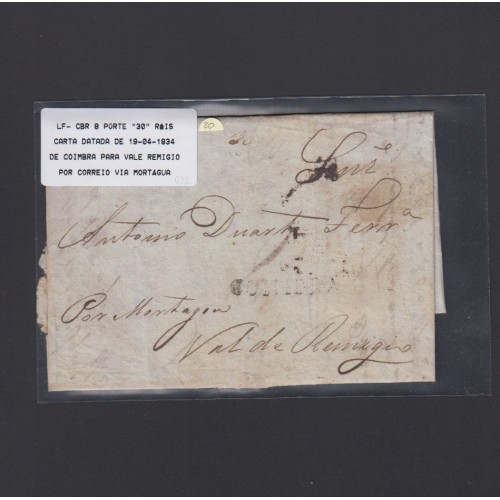 LF- CBR 8 PORTE "30" RÉIS
CARTA DATADA DE 19-04-1834
DE COIMBRA PARA VALE REMIGIO
POR CORREIO VIA MORTÁGUA
20
Snr.
Antonio Duarte Ferr.ª
COIMBRA
Por Mortagoa
Val de Remigio